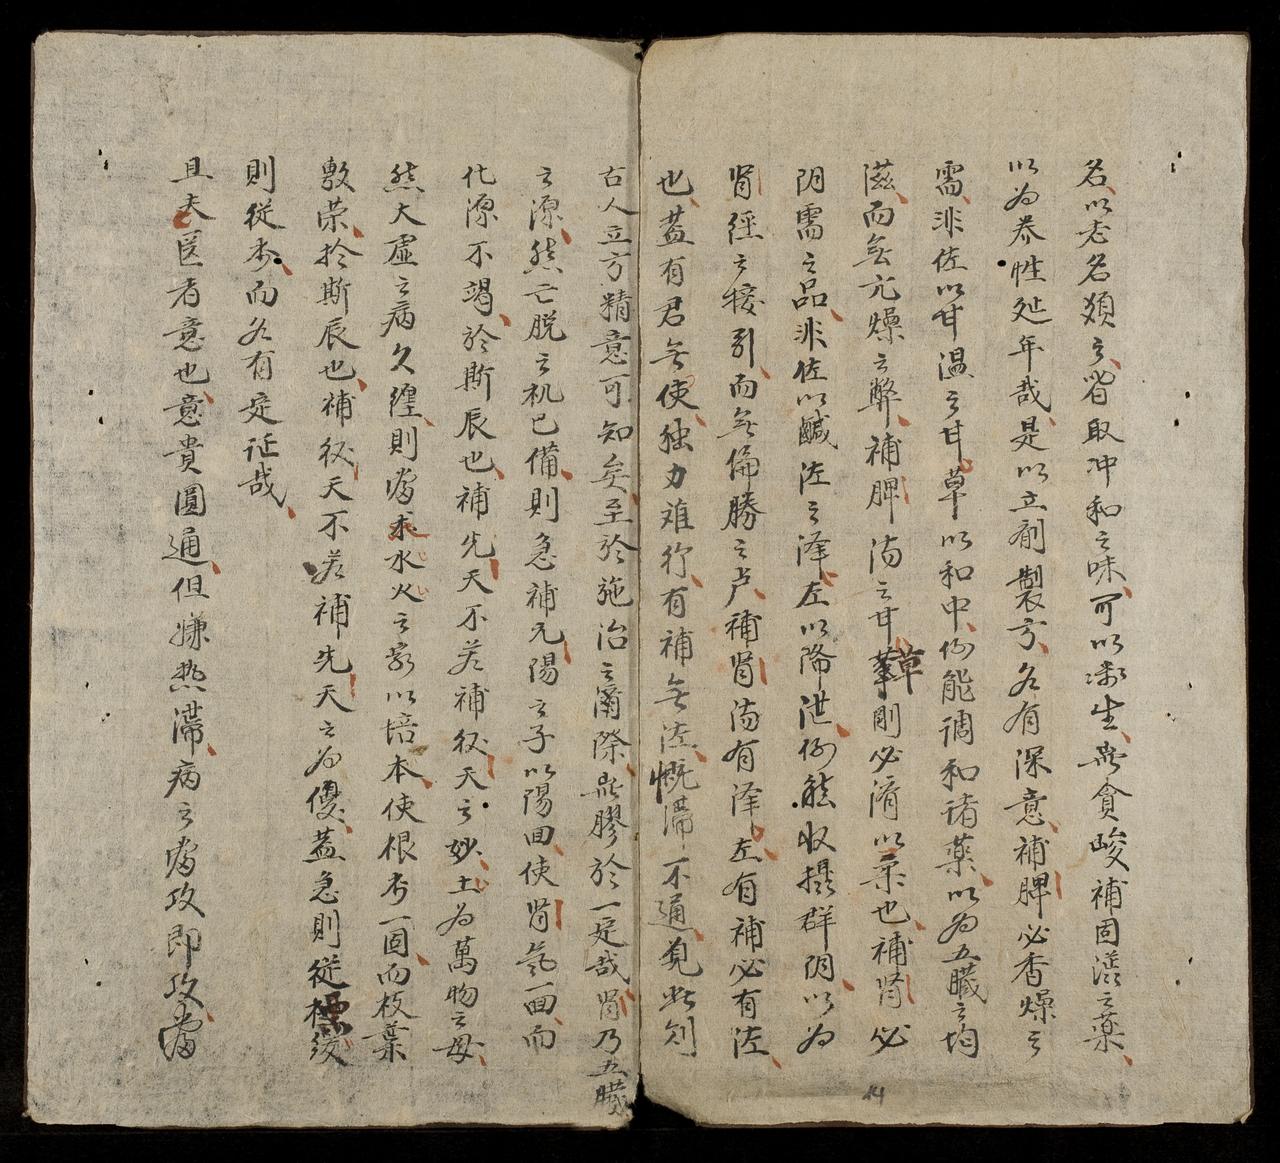 名以老名須之皆取冲和之味可以衛生無貪峻補固澁之藥
以為养性延年哉是以立劑製方各有深意補脾必香燥之
需非佐以甘温之甘草以和中何能調和诸藥以為五臓之均
滋而無亢燥之弊補脾湯之甘草剛必濟以柔也補肾必
阴需之品非佐以鹹泣之泽左以降泄何能收攝群阴以为
肾經之接引而無偏勝之户補肾湯有泽左有補必有泣
也盖有君無使独力难行有補無泣慨滞不通覓此则
古人立方精意可知矣至於施治之爾際無膠於一定哉肾乃五臓
之源然亡脱之机已備則急補元陽之子以陽回使肾氣面而
化源不竭於斯辰也補先天不若補後天之妙土为萬物之母
然大虚之病久纏則當求水火之家以培本使根本一固而枝葉
敷荣於斯辰也補後天不若補先天之为優盖急則從標緩
則從本而各有定证哉
且夫医者意也意貴圓通但嫌热滞病之當攻即攻當